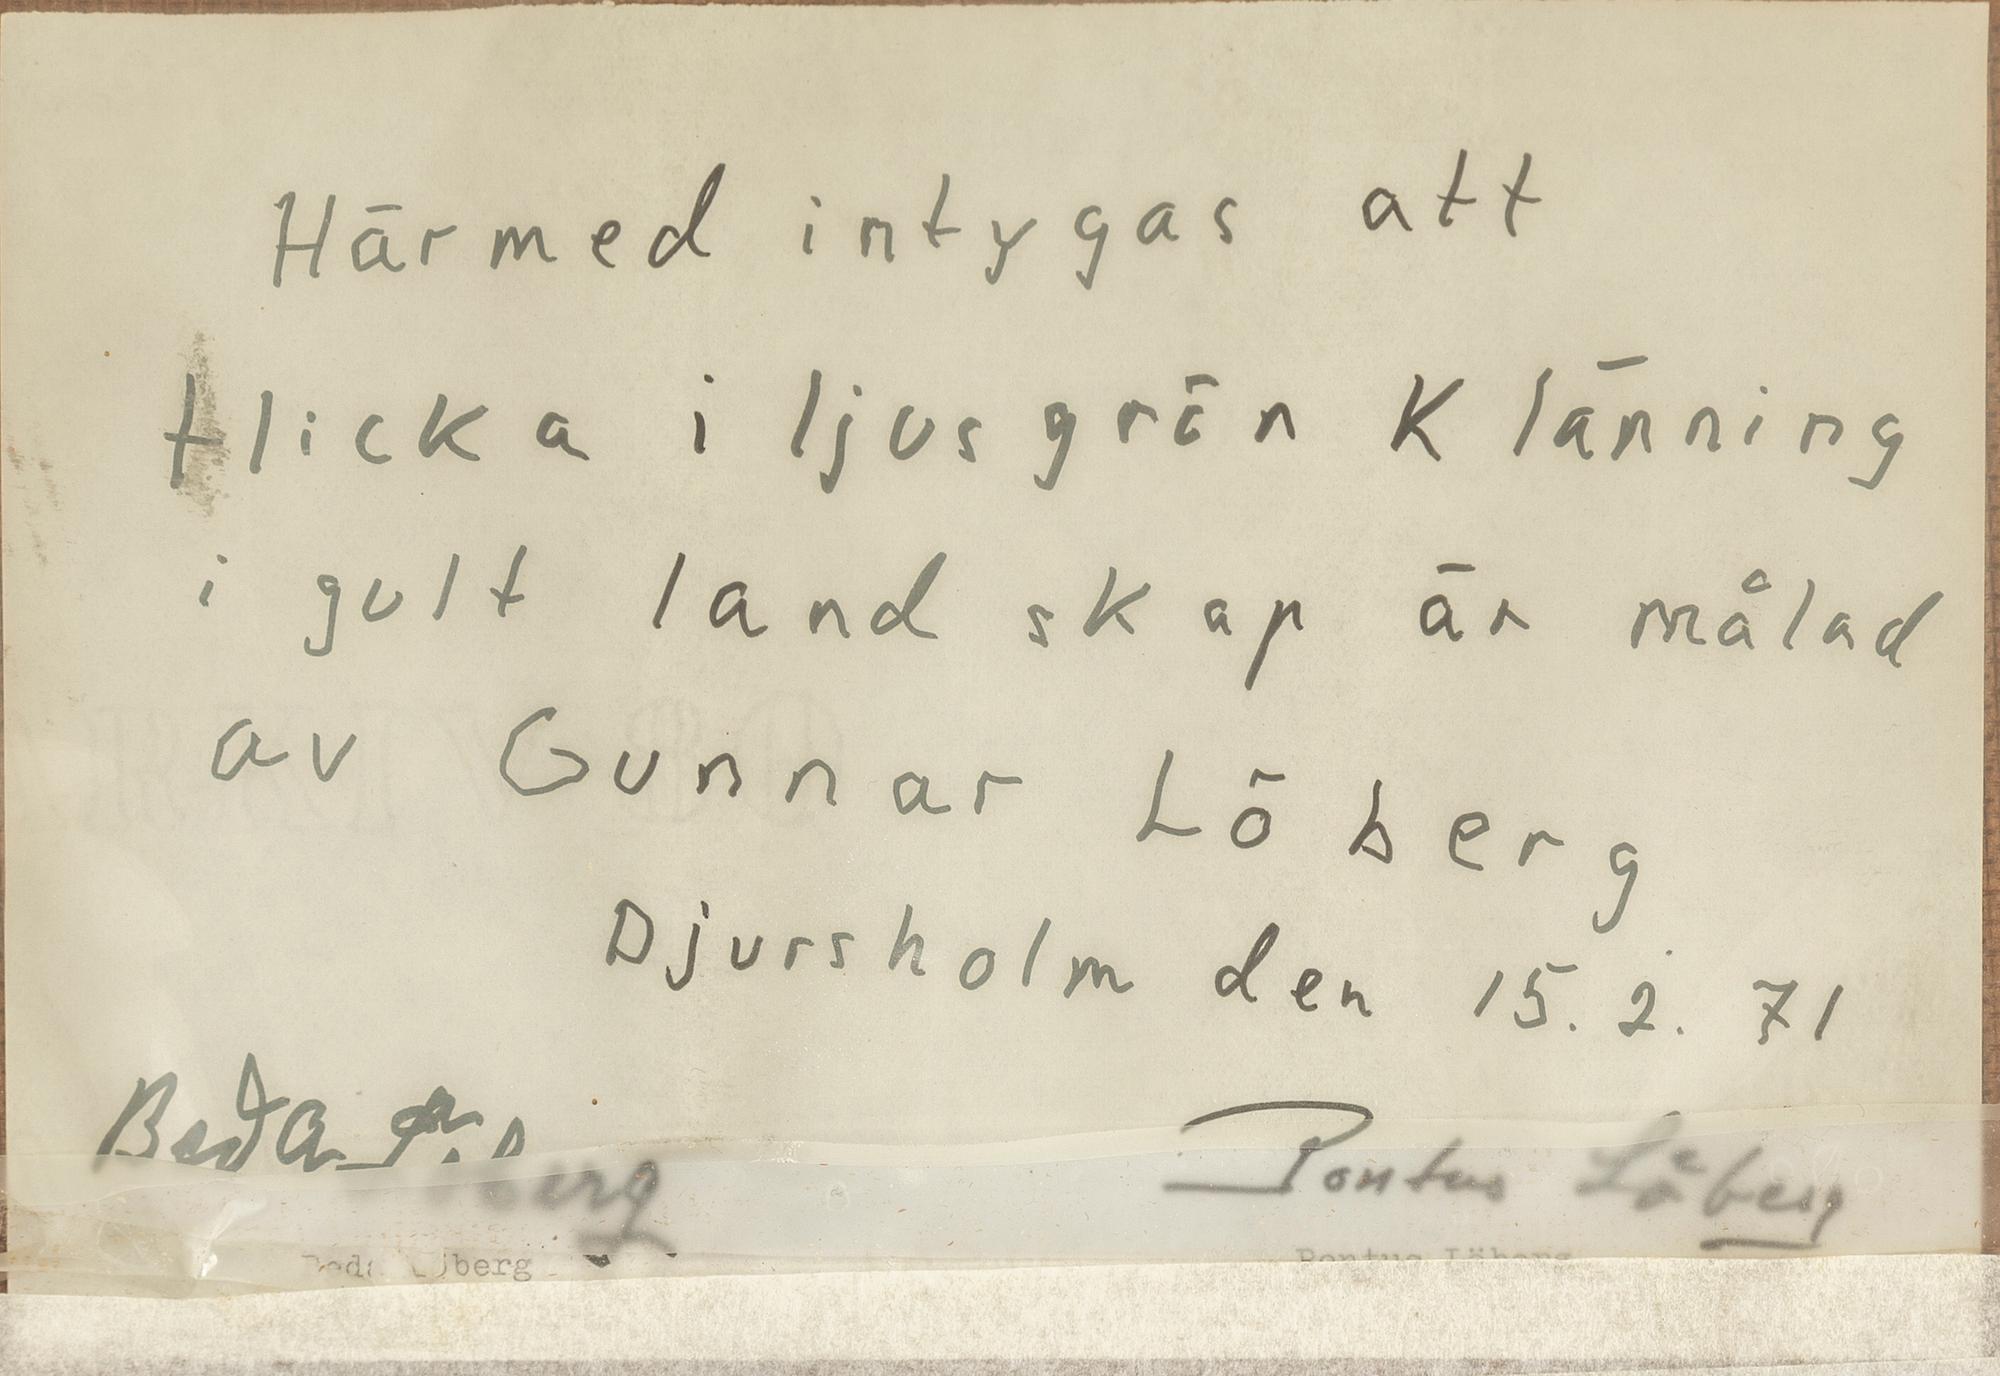 Härmed intygas att
flicka i ljusgrön Klänning
i gult landskap är målad
av Gunnar Löberg
Djursholm den 15.2.71
Beda Löberg
Pontus Löberg
Beda Löberg
Pontus Löberg